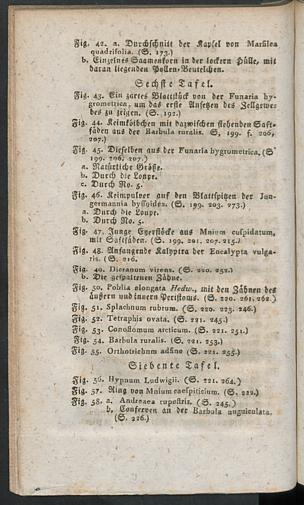 Fig. 42. a. Durchschnitt der Kapsel von Marsilea
quadrifolia. (S. 173.)
b. Einzelnes Saamenkorn in der lockern Hülle, mit
daran liegenden Pollen-Beutelchen.
Sechste Tafel.
Fig. 43. Ein zartes Blattstück von der Funaria hy-
grometrica, um das erste Ansetzen des Zellgewe-
bes zu zeigen. (S. 192.)
Fig. 44. Keimkölbchen mit dazwischen stehenden Saft-
fäden aus der Barbula ruralis. S, 199. f. 206,
207.)
Fig. 45. Dieselben aus der Funaria hygrometrica, (S
199. 206. 207.)
a. Natürliche Größe.
b. Durch die Loupe.
c. Durch No. 5.
Fig. 46. Keimpulver auf den Blattspitzen der Jun-
germannia byssoidea. (S. 199. 203. 273.)
a. Durch die Loupe.
b. Durch No. 5.
Fig. 47. Junge Eyerstöcke aus Mnium cuspidatum,
mit Saftfäden. (S. 199. 201. 207. 215.)
Fig. 48. Anfangende Kalyptra der Encalypta vulga-
ris. (S. 216.
Fig. 49. Dicranum virens. (S. 220. 252.)
b. Die gespaltenen Zähne.
Fig. 50. Pohlia elongata Hedw., mit den Zähnen des
äußern und innern Peristoms. (S. 220. 261. 262.)
Fig. 51. Splachnum rubrum. (S. 220. 223. 246.)
Fig. 52. Tetraphis ovata. (S. 221. 245.)
Fig. 53. Conostomum arcticum. (S. 221. 251.)
Fig. 54. Barbula ruralis. (S. 221. 253.)
Fig. 55. Orthotrichum affine (S. 221. 255.)
Siebente Tafel.
Fig. 56. Hypnum Ludwigii. (S. 221. 264.)
Fig. 57. Ring von Mnium caespiticium. (S. 222.)
Fig. 58. a. Andreaea rupestris. (S. 245.)
b. Conferven an der Barbula unguiculata.
(S. 226.)